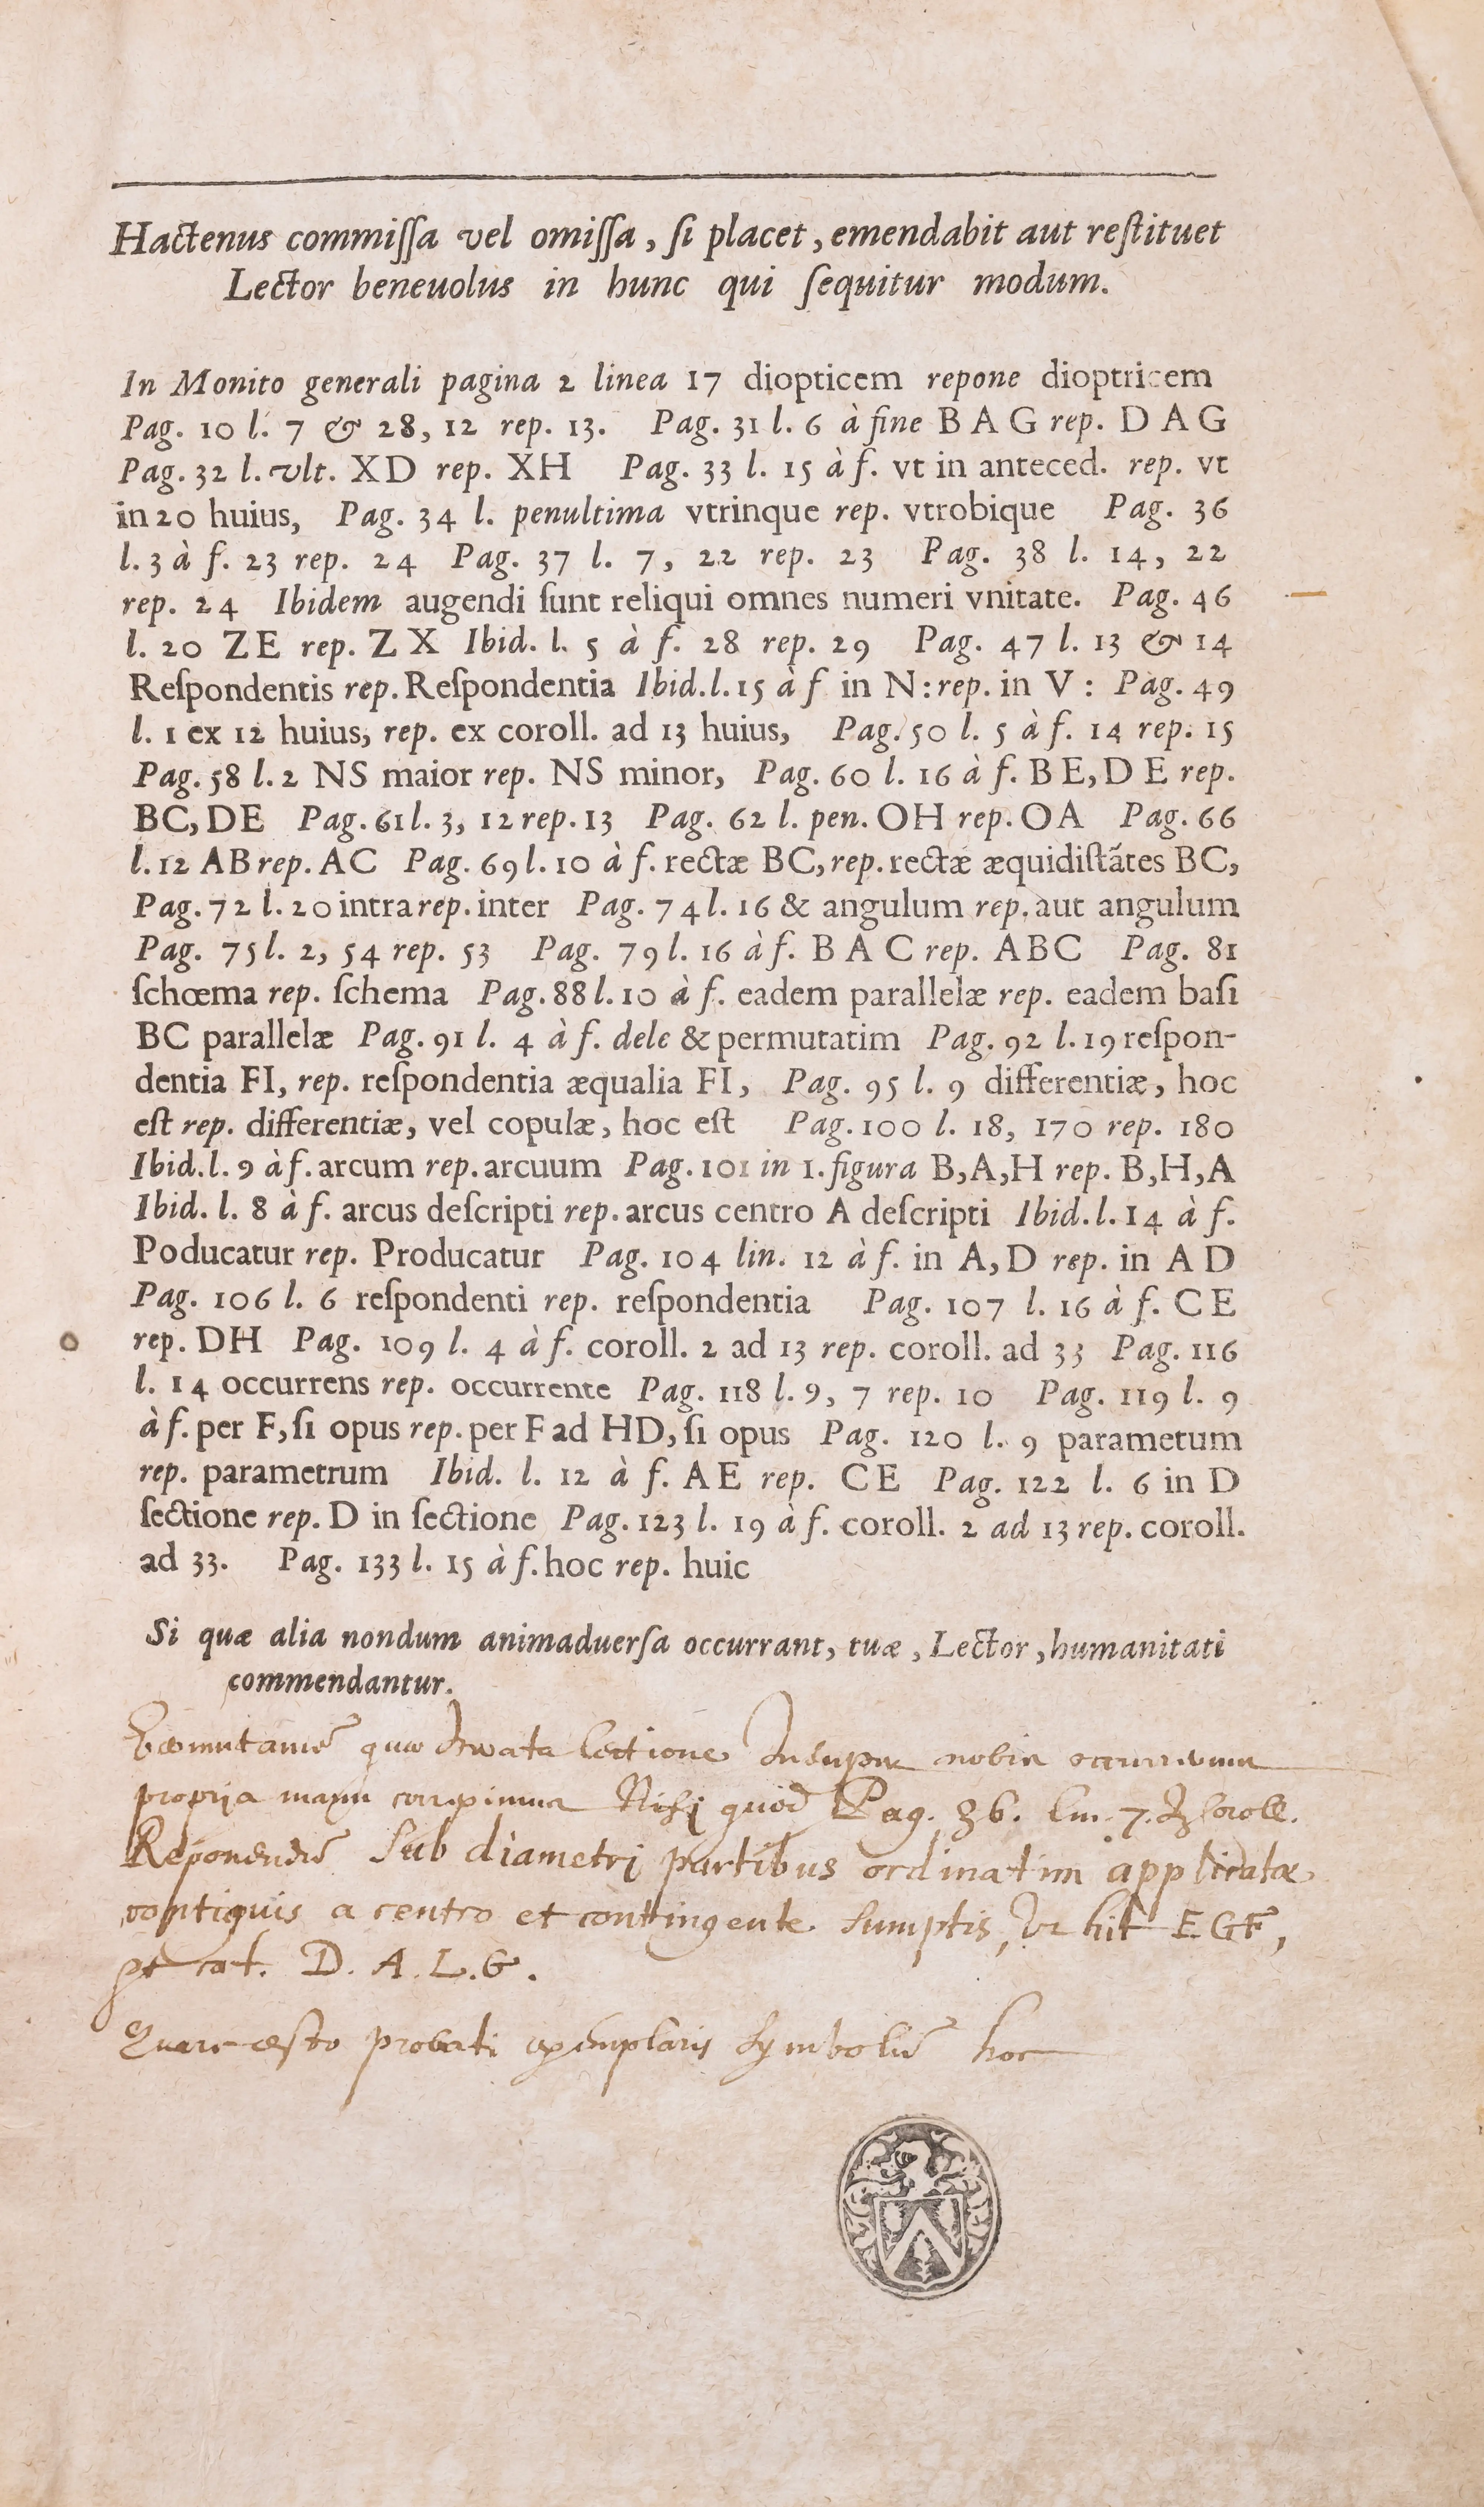 Hactenus commiſſa vel omiſſa, ſi placet, emendabit aut reſtituet
Lector beneuolus in hunc qui ſequitur modum.
In Monito generali pagina 2 linea 17 diopticem repone dioptricem
Pag. 10 l. 7 & 28, 12 rep. 13. Pag. 31 l. 6 à fine B A G rep. D A G
Pag. 32 l. vlt. XD rep. XH Pag. 33 l. 15 à f. vt in anteced. rep. vt
in 20 huius, Pag. 34 l. penultima vtrinque rep. vtrobique Pag. 36
l. 3 à f. 23 rep. 24 Pag. 37 l. 7, 22 rep. 23 Pag. 38 l. 14, 22
rep. 24 Ibidem augendi ſunt reliqui omnes numeri vnitate. Pag. 46
l. 20 ZE rep. Z X Ibid. l. 5 à f. 28 rep. 29 Pag. 47 l. 13 & 14
Reſpondentis rep. Reſpondentia Ibid. l. 15 à f in N: rep. in V: Pag. 49
l. 1 ex 12 huius, rep. ex coroll. ad 13 huius, Pag. 50 l. 5 à f. 14 rep. 15
Pag. 58 l. 2 NS maior rep. NS minor, Pag. 60 l. 16 à f. B E, D E rep.
BC, DE Pag. 61 l. 3, 12 rep. 13 Pag. 62 l. pen. OH rep. OA Pag. 66
l. 12 AB rep. AC Pag. 69 l. 10 à f. rectæ BC, rep. rectæ æquidiſtātes BC,
Pag. 72 l. 20 intra rep. inter Pag. 74 l. 16 & angulum rep. aut angulum
Pag. 75 l. 2, 54 rep. 53 Pag. 79 l. 16 à f. B A C rep. ABC Pag. 81
ſchœma rep. ſchema Pag. 88 l. 10 à f. eadem parallelæ rep. eadem baſi
BC parallelæ Pag. 91 l. 4 à f. dele & permutatim Pag. 92 l. 19 reſpon-
dentia FI, rep. reſpondentia æqualia FI, Pag. 95 l. 9 differentiæ, hoc
eſt rep. differentiæ, vel copulæ, hoc eſt Pag. 100 l. 18, 170 rep. 180
Ibid. l. 9 à f. arcum rep. arcuum Pag. 101 in 1. figura B, A, H rep. B, H, A
Ibid. l. 8 à f. arcus deſcripti rep. arcus centro A deſcripti Ibid. l. 14 à f.
Poducatur rep. Producatur Pag. 104 lin. 12 à f. in A, D rep. in A D
Pag. 106 l. 6 reſpondenti rep. reſpondentia Pag. 107 l. 16 à f. C E
rep. DH Pag. 109 l. 4 à f. coroll. 2 ad 13 rep. coroll. ad 33 Pag. 116
l. 14 occurrens rep. occurrente Pag. 118 l. 9, 7 rep. 10 Pag. 119 l. 9
à f. per F, ſi opus rep. per F ad HD, ſi opus Pag. 120 l. 9 parametum
rep. parametrum Ibid. l. 12 à f. A E rep. C E Pag. 122 l. 6 in D
ſectione rep. D in ſectione Pag. 123 l. 19 à f. coroll. 2 ad 13 rep. coroll.
ad 33. Pag. 133 l. 15 à f. hoc rep. huic
Si quæ alia nondum animaduerſa occurrant, tuæ, Lector, humanitati
commendantur.
quæ lectione Insuper nobis
propria manu Nisi quod Pag. 36. lin. 7.
Reponendū Sub diametri partibus ordinatim applicatæ
contiguis a centro et contingente sumptis, Vt hit EGF,
et cat. D. A. L. G.
Quare esto probati exemplaris Symbolū hoc